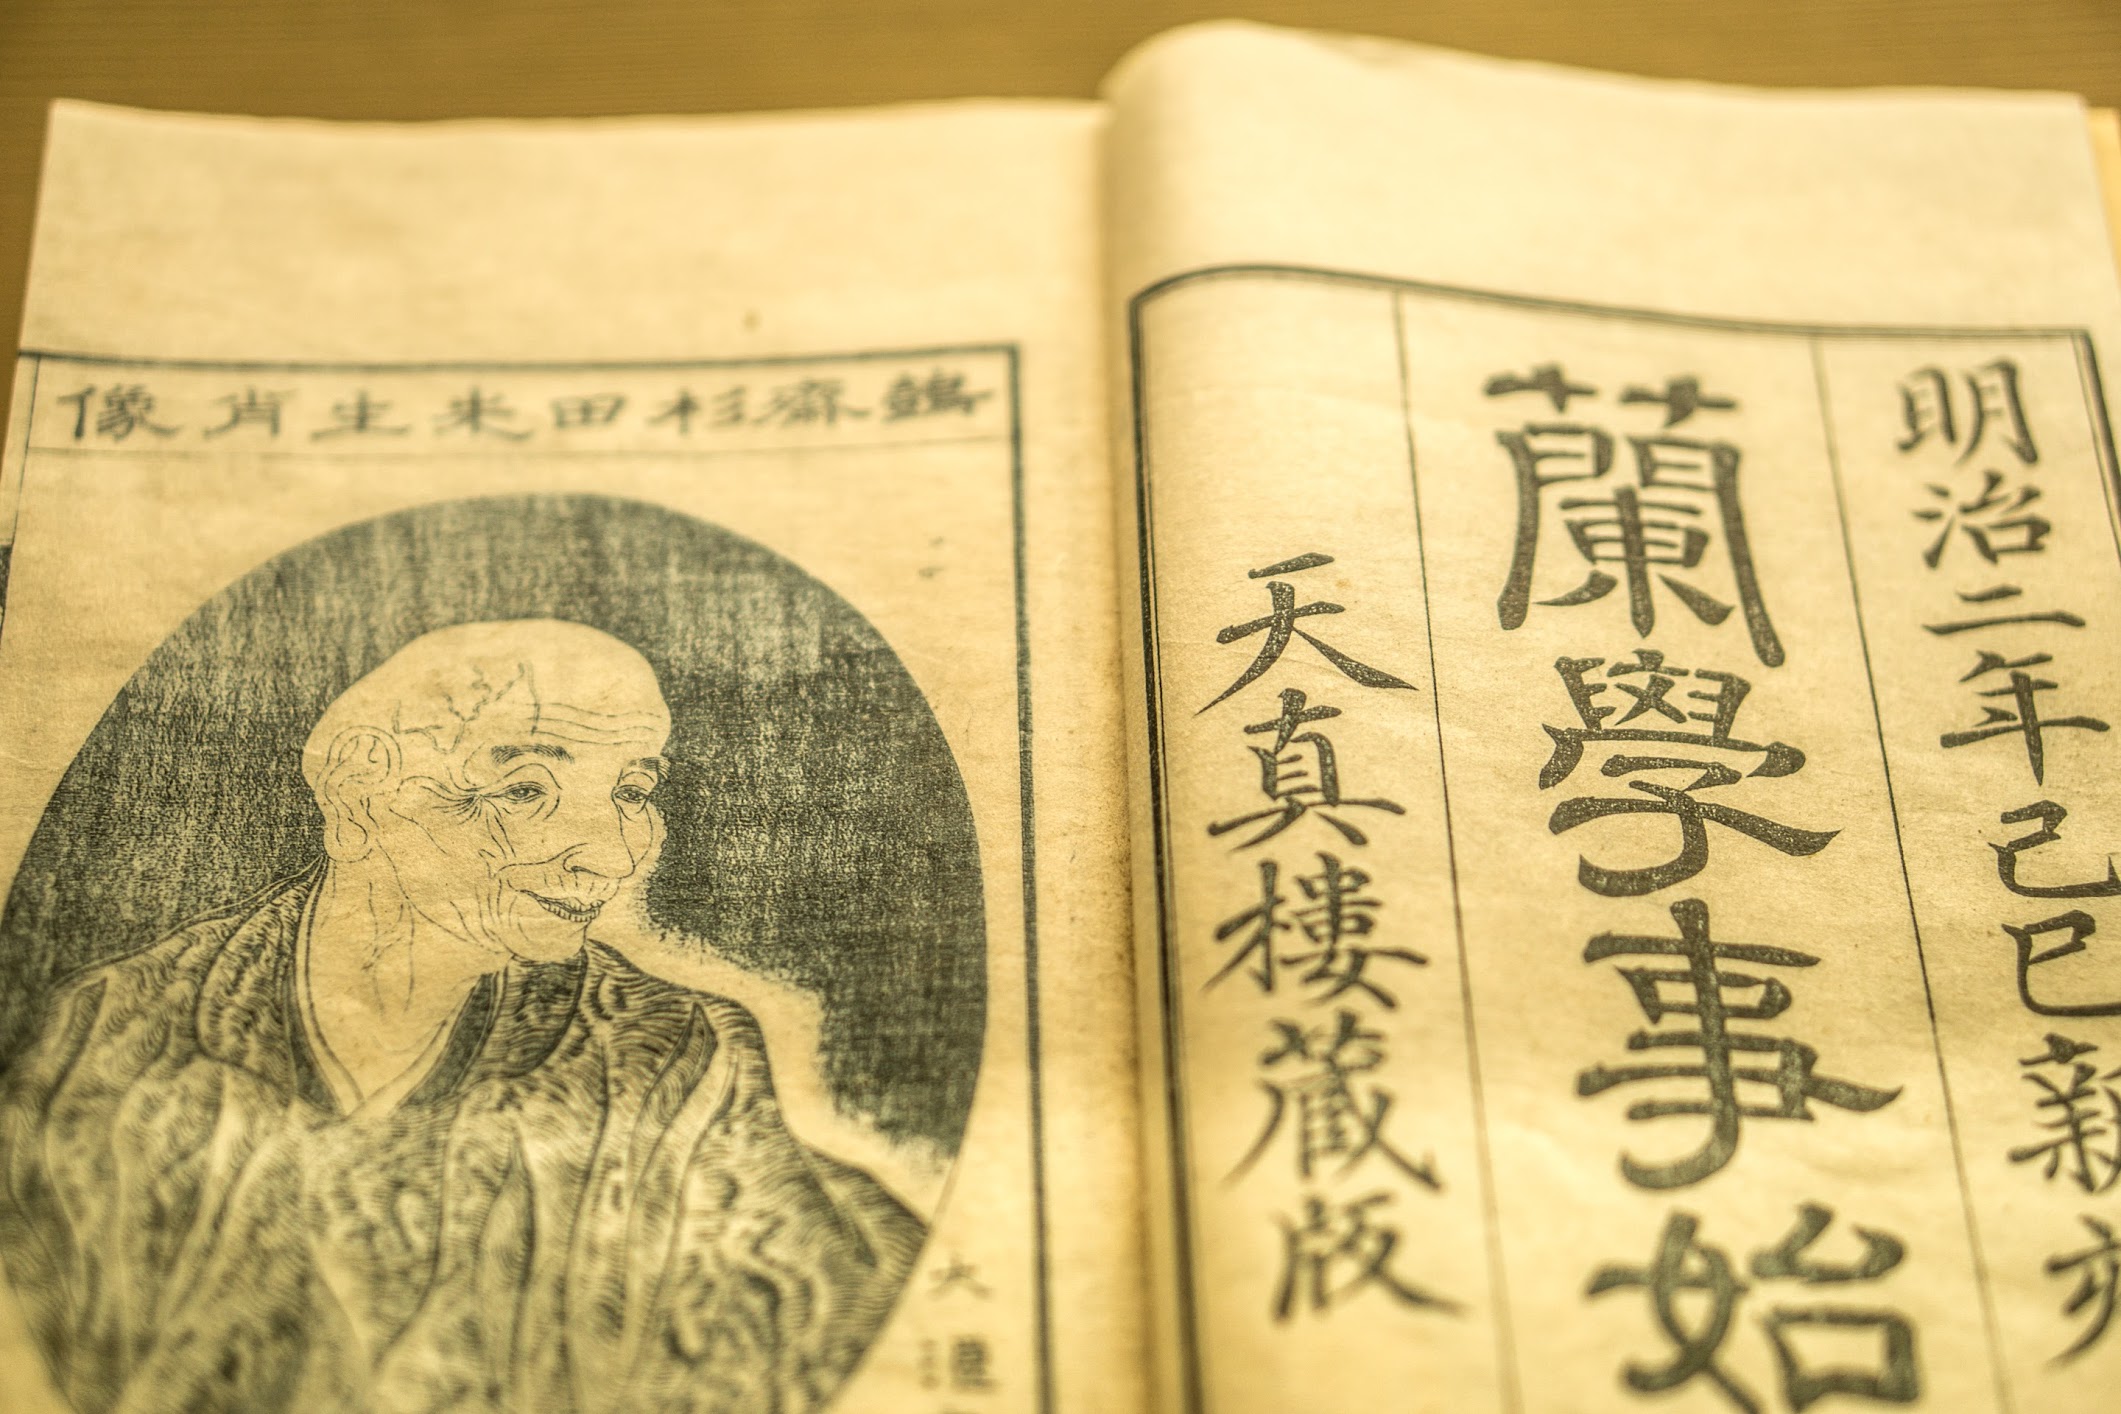 明治二年己巳新刻
蘭學事始
天真樓藏版
鷧齋杉田先生肖像
大